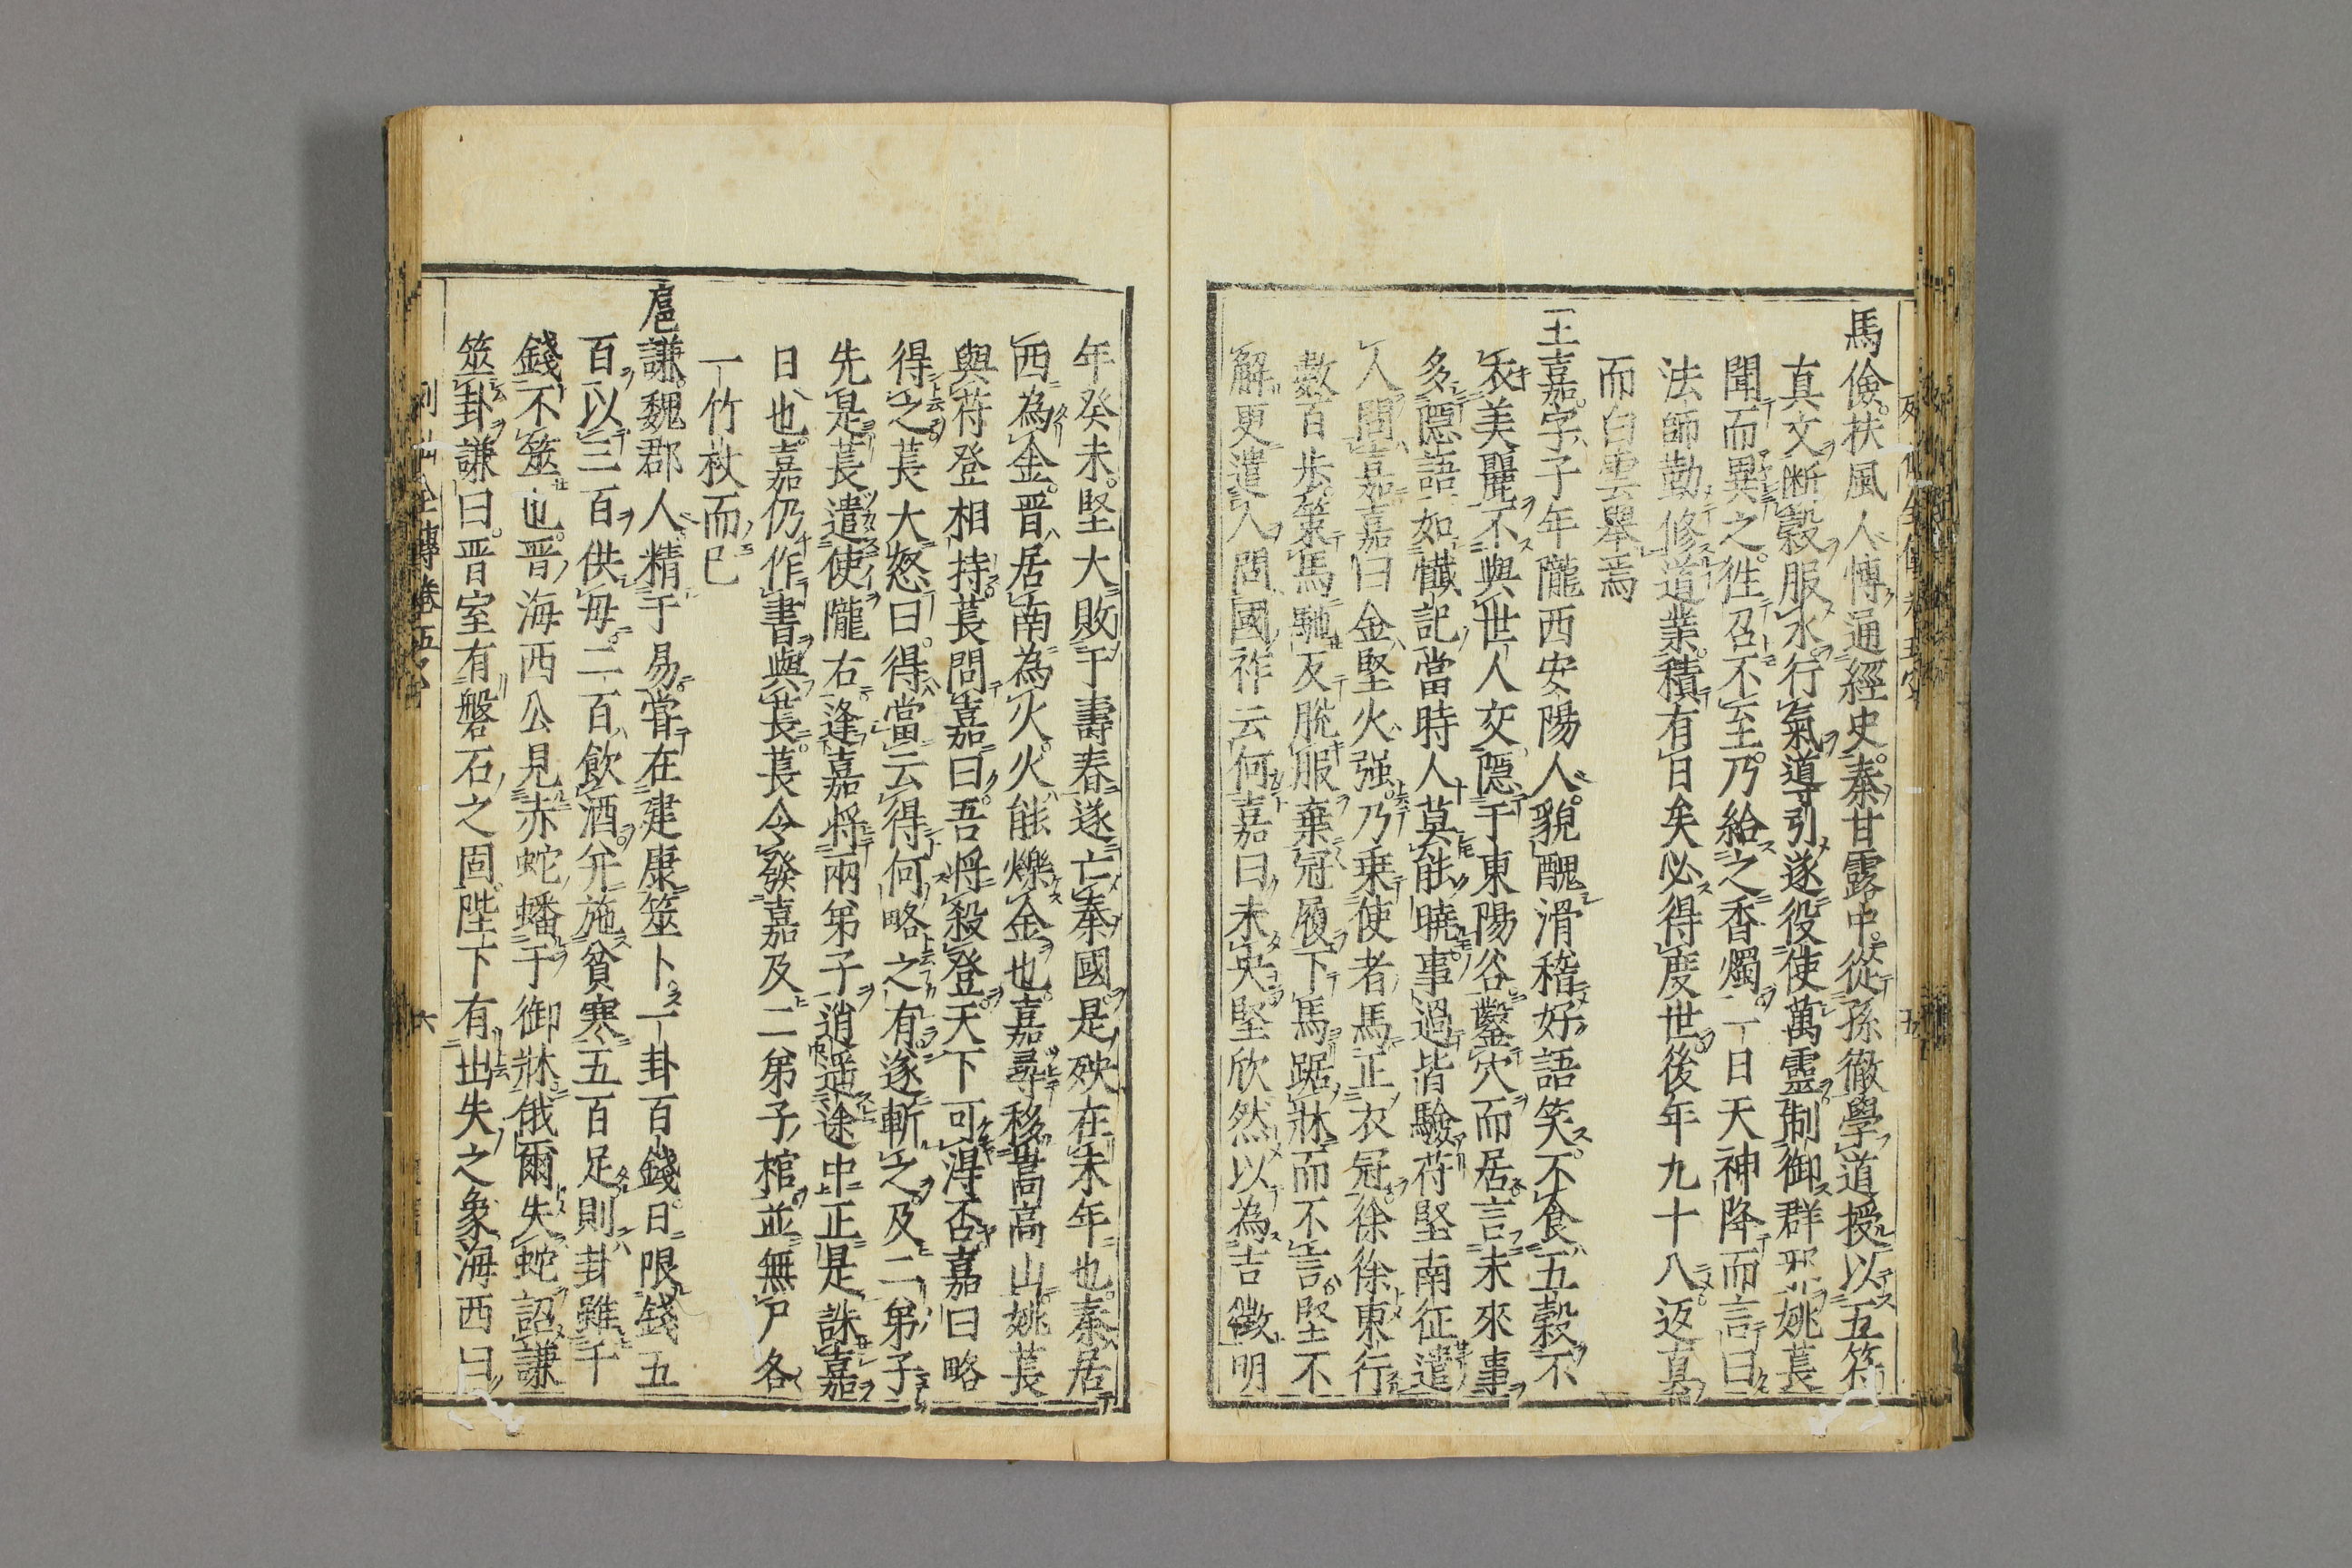 馬儉。扶風人。博通經史。秦甘露中。從孫徹學道。授以五符
真文。斷穀服水。行氣導引。遂役使萬靈。制御群邪。姚萇
聞而異之。徃召不至。乃給之香燭。一日天神降而言曰
法師勤修道業。積有日矣。必得度世。後年九十八返真
而白雲舉焉
王嘉。字子年。隴西安陽人。貌醜滑稽。好語笑。不食五穀。不
衣美麗。不與世人交。隱于東陽谷。鑿穴而居。言未來事
多隱語。如懺記。當時人莫能曉。事過皆驗。苻堅南征。遣
人問嘉。嘉曰。金堅火强。乃乗使者馬。正衣冠。徐徐東行
數百歩。策馬馳反。脫服棄冠履。下馬踞牀而不言。堅不
解。更遣人問國祚云何。嘉曰。未央。堅欣然以為吉徵。明
年癸未。堅大敗于壽春。遂亡秦國。是殃在未年也。秦居
西為金。晋居南為火。火能爍金也。嘉尋移嵩高山。姚萇
與苻登相持。萇問嘉曰。吾將殺登。天下可得否。嘉曰。略
得之。萇大怒曰。得當云得。何略之有。遂斬之。及二弟子
先是萇遣使隴右。逢嘉將兩弟子。逍遥途中。正是誅嘉
日也。嘉仍作書與萇。萇令發嘉及二弟子棺。並無尸。各
一竹杖而已
扈謙。魏郡人。精于易。嘗在建康筮卜。一卦百錢。日限錢五
百。以三百供母。二百飲酒。并施貧寒。五百足則卦雖千
錢不筮也。晋海西公見赤蛇蟠于御牀。俄爾失蛇。詔謙
筮卦。謙曰。晋室有磐石之固。陛下有出失之象。海西曰
列仙全傳卷五
六